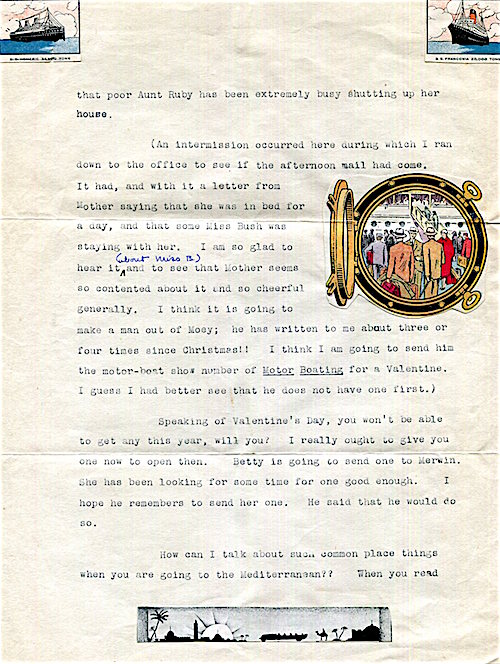 S.S. FRANCONIA 20,000 TONS
that poor Aunt Ruby has been extremely busy shutting up her
house.
(An intermission occurred here during which I ran
down to the office to see if the afternoon mail had come.
It had, and with it a letter from
Mother saying that she was in bed for
a day, and that some Miss Bush was
staying with her. I am so glad to
(about Miss B.)
hear it and to see that Mother seems
so contented about it and so cheerful
generally. I think it is going to
make a man out of Moey; he has written to me about three or
four times since Christmas!! I think I am going to send him
the motor-boat show number of Motor Boating for a Valentine.
I guess I had better see that he does not have one first.)
Speaking of Valentine's Day, you won't be able
to get any this year, will you? I really ought to give you
one now to open then. Betty is going to send one to Merwin.
She has been looking for some time for one good enough. I
hope he remembers to send her one. He said that he would do
so.
How can I talk about such common place things
when you are going to the Mediterranean?? When you read